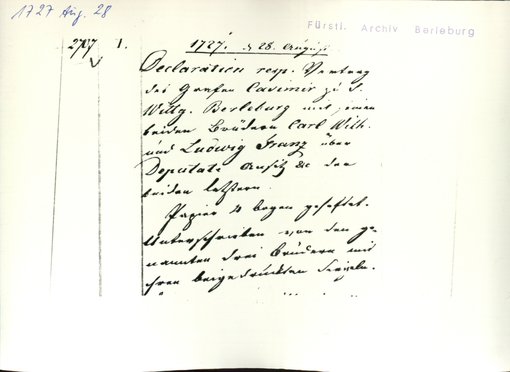 1727 Aug. 28
Fürstl. Archiv Berleburg
2727 1. 1727. d 28. August
Declaration resp. Vertrag
des Grafen Casimir zu S.
Wittg. Berleburg mit seinen
beiden Brüdern Carl Wilh.
und Ludwig Franz über
Deputate Ansitz &c der
beiden letztern.
Papier 4 bogen geheftet.
Unterschrieben von den ge-
nannten drei Brüdern mit
ihren beigedrückten Siegeln.